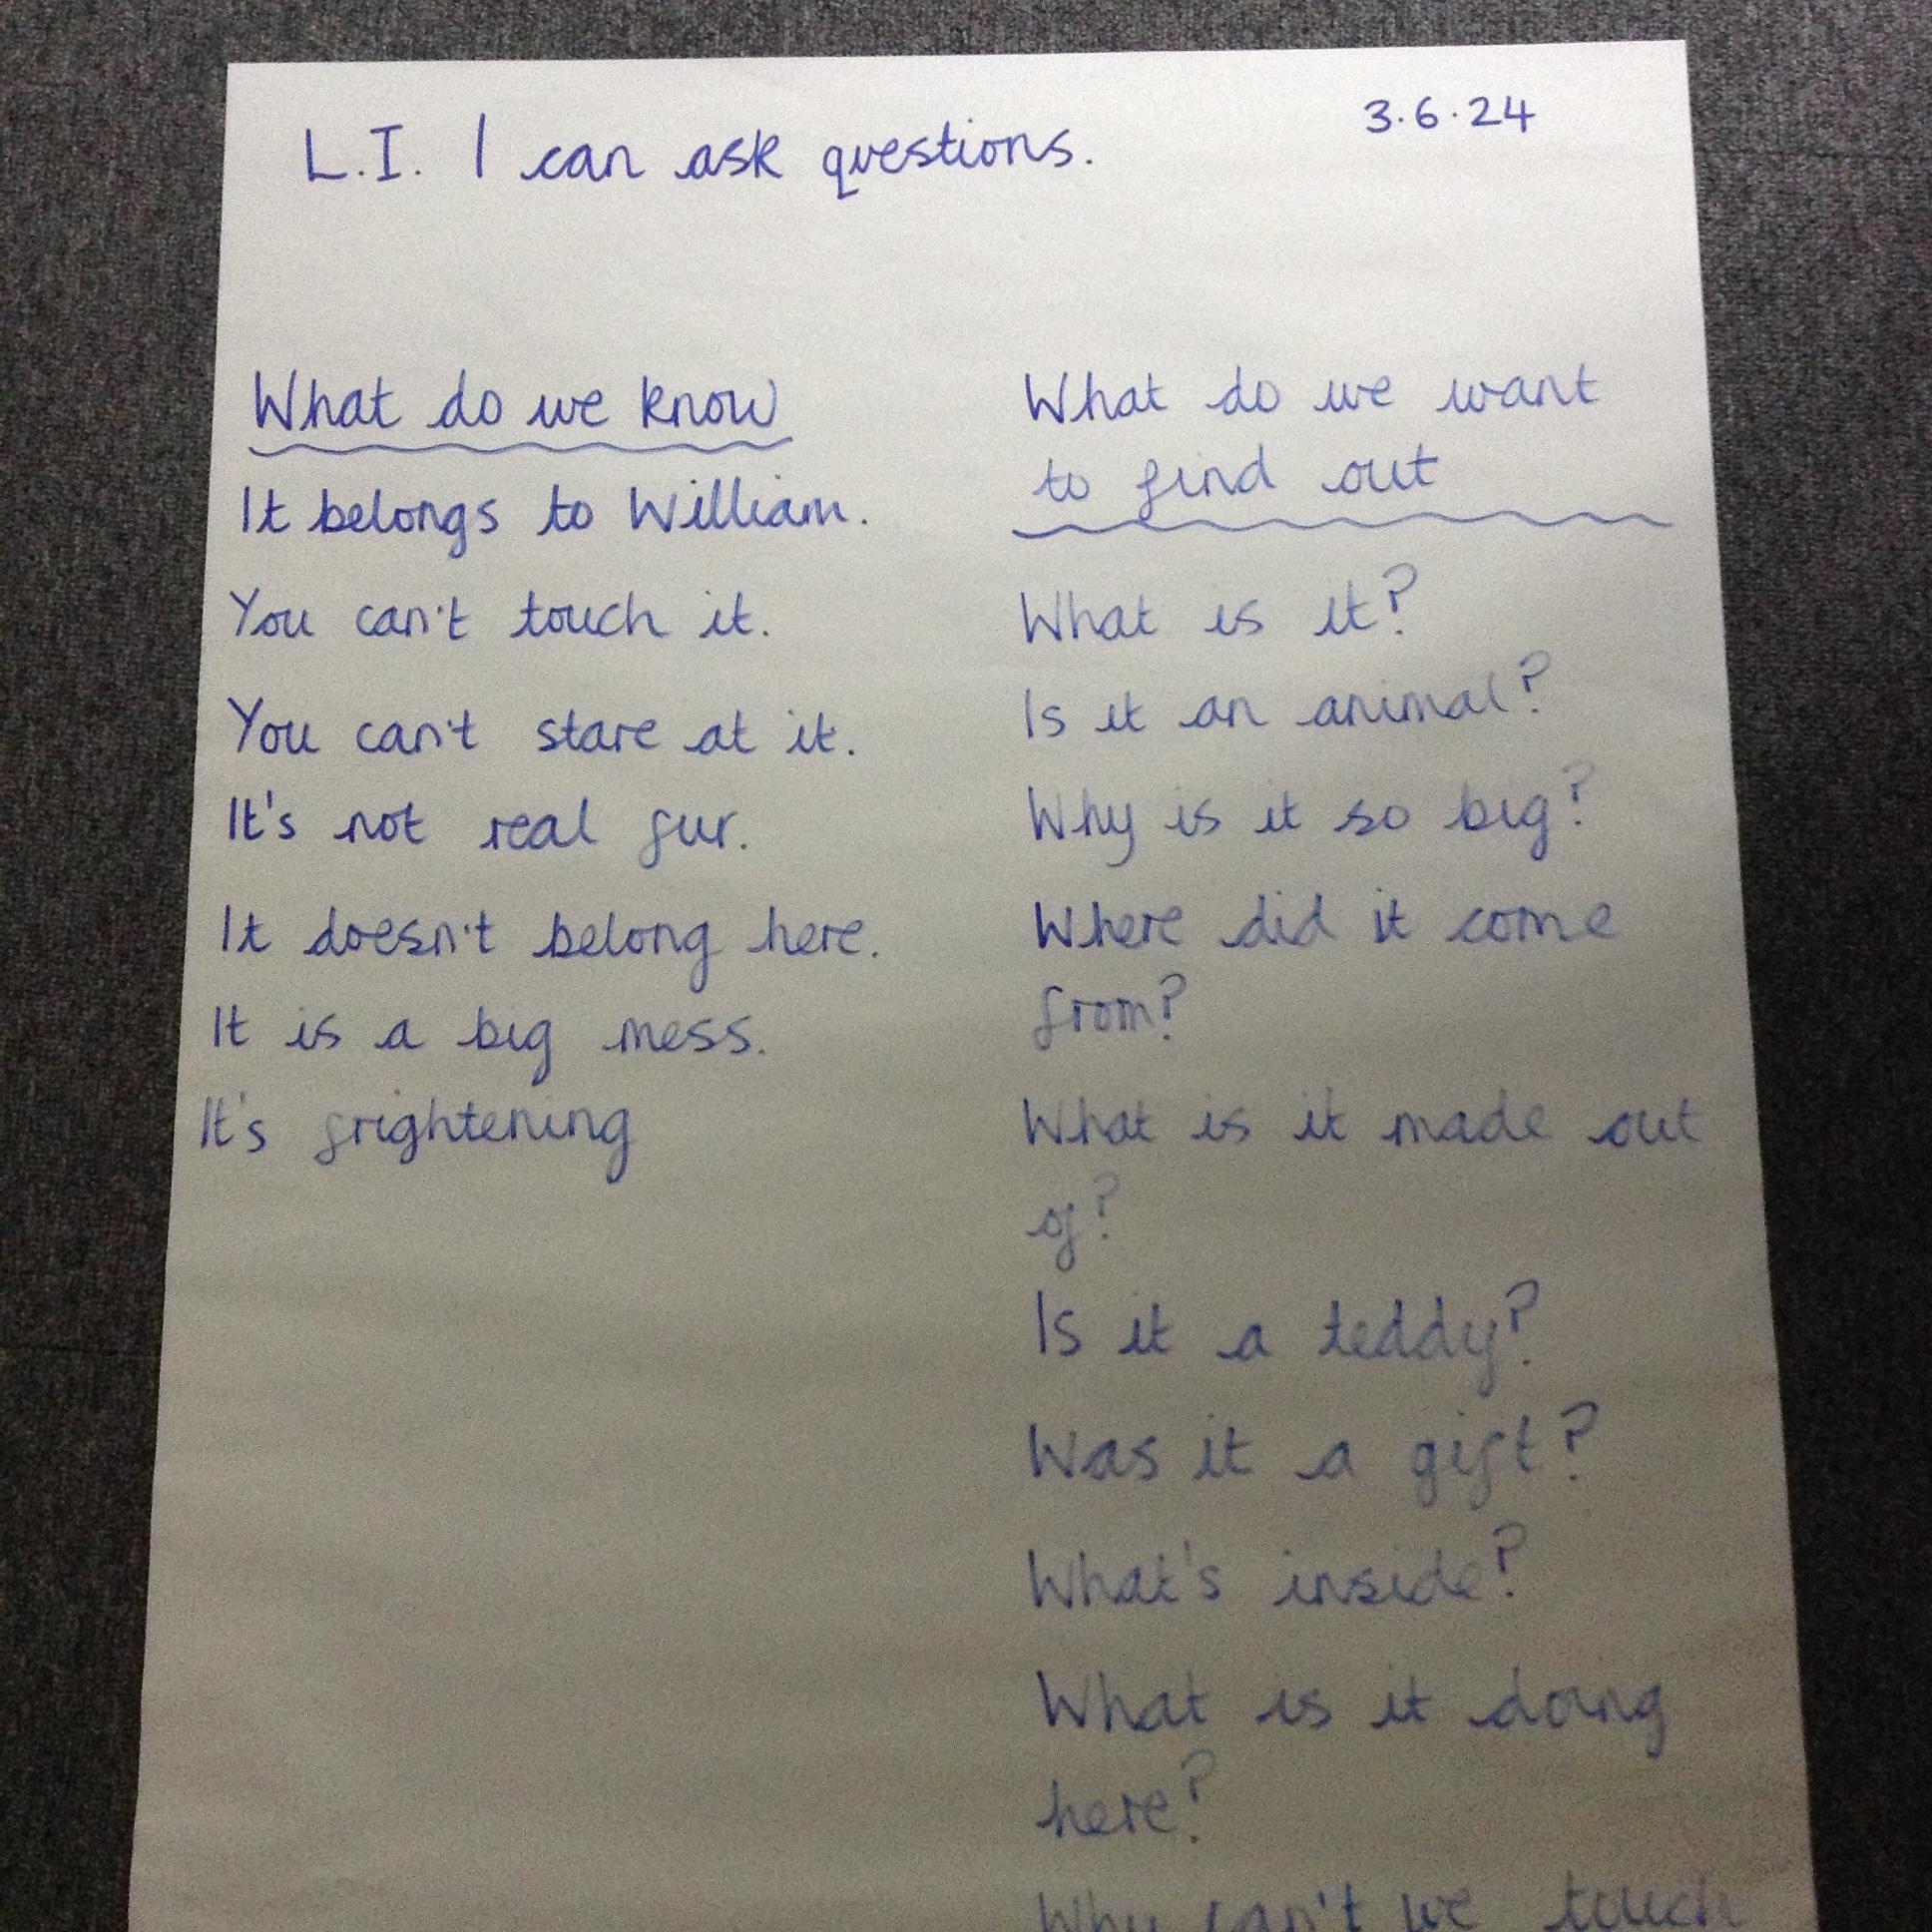 L.I. I can ask questions.
3.6.24
What do we know
It belongs to William.
You can't touch it.
You can't stare at it.
It's not real fur.
It doesn't belong here.
It is a big mess.
It's frightening
What do we want
to find out
What is it?
Is it an animal?
Why is it so big?
Where did it come
from?
What is it made out
of?
Is it a teddy?
Was it a gift?
What's inside?
What is it doing
here?
Why can't we touch